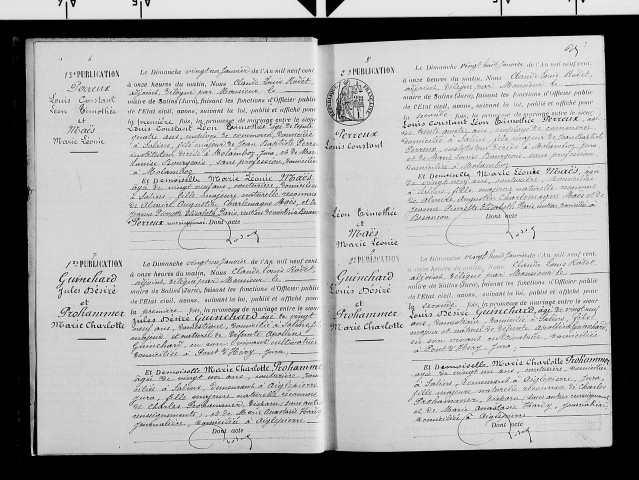 6
1re PUBLICATION
Perreux
Louis Constant
Léon Timothée
et
Maës
Marie Léonie
Le Dimanche vingt un Janvier de l'An mil neuf cent
à onze heures du matin, Nous Claude Louis Rodet,
adjoint, délégué par Monsieur le
maire de Salins (Jura), faisant les fonctions d'Officier public
de l'Etat civil, avons, suivant la loi, publié et affiché pour
la première fois, la promesse de mariage entre le sieur
Louis Constant Léon Timothée
domicilié
à Salins, fils majeur de Jean Baptiste Perreux
instituteur décédé à Molamboz, Jura, et de Marie
Louise Bourgeois, sans profession, domiciliée
à Molamboz
Et Demoiselle Marie Léonie Maës
âgée de vingt neuf ans, couturière, domiciliée
à Salins, fille majeure naturelle reconnue
de Almire Augustin Charlemagne Maës, et de
Besançon
Perreux
Dont acte
Rodet
7
1re PUBLICATION
Guinchard
Jules Désiré
et
Prohammer
Marie Charlotte
Le Dimanche vingt un Janvier de l'An mil neuf cent
à onze heures du matin, Nous Claude Louis Rodet,
adjoint, délégué par Monsieur le
maire de Salins (Jura), faisant les fonctions d'Officier public
de l'Etat civil, avons, suivant la loi, publié et affiché pour
la première fois, la promesse de mariage entre le sieur
Jules Désiré Guinchard, âgé de vingt
neuf ans, domestique, domicilié à Salins, fils
majeur et naturel de défunte
Guinchard, en son vivant cultivatrice
domiciliée à Pont d'Héry, Jura,
Et Demoiselle Marie Charlotte Prohammer
âgée de vingt un ans, couturière, domi-
ciliée à Salins, demeurant à Aiglepierre
Jura, fille majeure naturelle reconnue
de Charles Prohammer, disparu (sans autre
enseignements), et de Marie Anastasie Hardy
journalière, domiciliée à Aiglepierre
Dont acte
Rodet
8
2e PUBLICATION
Perreux
Louis Constant
Léon Timothée
et
Maës
Marie Léonie
Le Dimanche vingt huit Janvier de l'An mil neuf cent
à onze heures du matin, Nous Claude Louis Rodet,
adjoint, délégué par Monsieur le
maire de Salins (Jura), faisant les fonctions d'Officier public
de l'Etat civil, avons, suivant la loi, publié et affiché pour
la seconde fois, la promesse de mariage entre le sieur
Louis Constant Léon Timothée Perreux,
domicilié
à Salins, fils majeur de Jean Baptiste
Perreux, instituteur décédé à Molamboz Jura
et de Marie Louise Bourgeois, sans profession
domiciliée à Molamboz
Et Demoiselle Marie Léonie Maës,
âgée de vingt neuf ans, couturière, domiciliée
à Salins, fille majeure naturelle reconnue
de Almire Augustin Charlemagne Maës et de
domiciliée à
Besançon
Dont acte
Rodet
9
2e PUBLICATION
Guinchard
Louis Désiré
et
Prohammer
Marie Charlotte
Le Dimanche vingt huit Janvier de l'An mil neuf cent
à onze heures du matin, Nous Claude Louis Rodet
adjoint, délégué par Monsieur le
maire de Salins (Jura), faisant les fonctions d'Officier public
de l'Etat civil, avons, suivant la loi, publié et affiché pour
la seconde fois, la promesse de mariage entre le sieur
Louis Désiré Guinchard, âgé de vingt neuf
ans, domestique, domicilié à Salins, fils
majeur et naturel de défunte Guinchard,
en son vivant cultivatrice, domiciliée
à Pont d'Héry, Jura
Et Demoiselle Marie Charlotte Prohammer
âgée de vingt un ans, couturière, domiciliée
à Salins, demeurant à Aiglepierre, Jura,
fille majeure naturelle reconnue de Charles
Prohammer, disparu (sans autre enseignement)
et de Marie Anastasie Hardy, journalière
domiciliée à Aiglepierre
Dont acte
Rodet